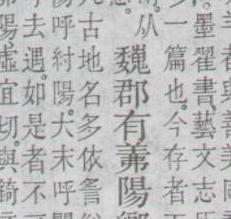 墨翟書藝文志
一篇也。今存者
从
魏郡有羛陽鄉
古地名多依
呼紂陽。大末呼
去遇。如是者不
陽虛宜切。與錡